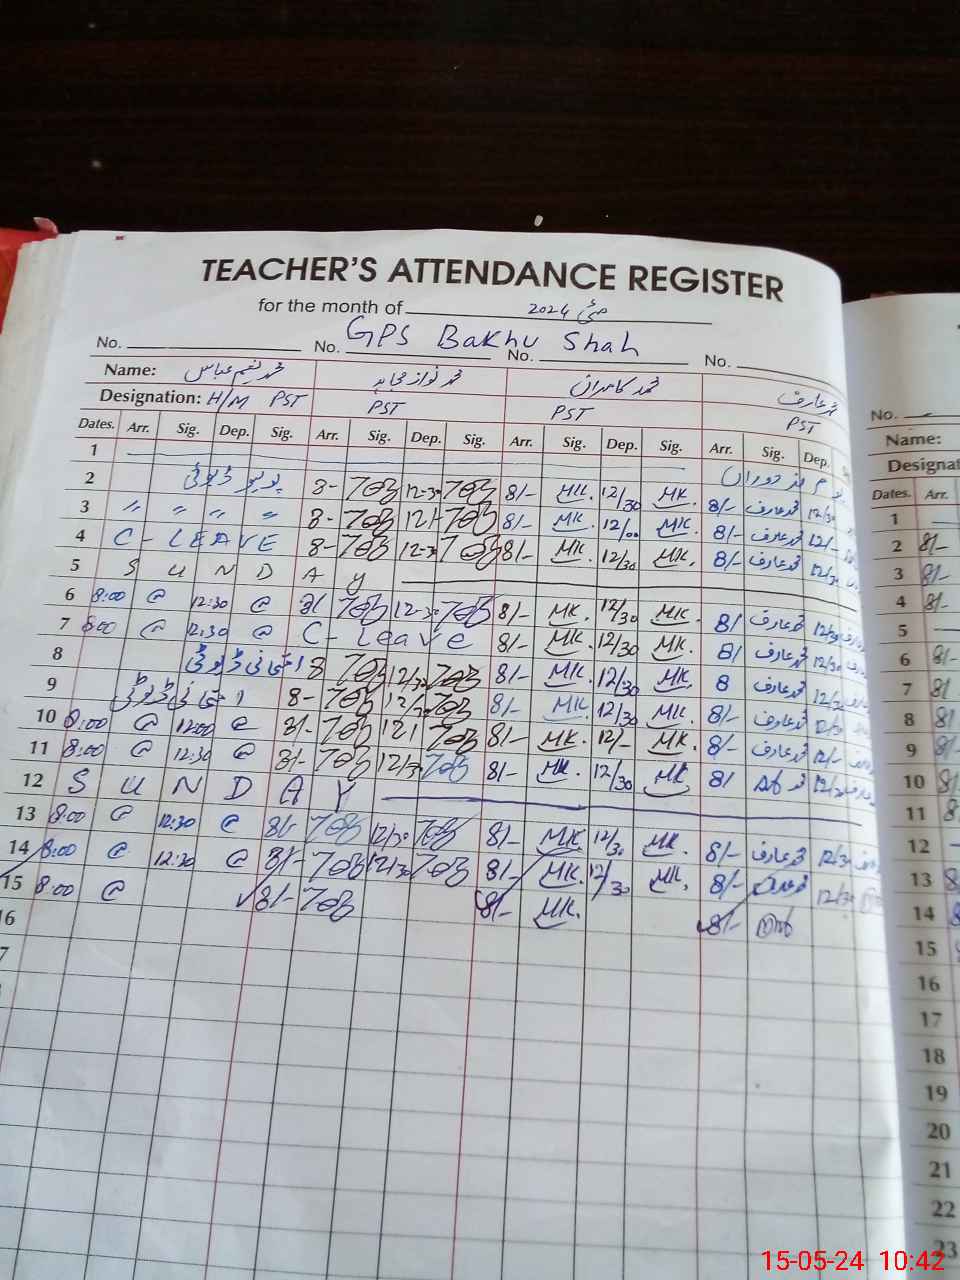 TEACHER'S ATTENDANCE REGISTER
for the month of مئی 2024
GPS Bakhu Shah
No. No. No. No.
Name: محمد نعیم عباس محمد نواز مجاہد محمد کامران محمد عارف
Designation: H/M PST PST PST PST
Dates. Arr. Sig. Dep. Sig. Arr. Sig. Dep. Sig. Arr. Sig. Dep. Sig. Arr. Sig. Dep.
1 یوم مزدوراں
2 پولیو ڈیوٹی 8- 12-30 8/- MK. 12/30 MK. 8/- محمد عارف 12/30
3 " " " " 8- 12/- 8/- MK. 12/00 MK. 8/- محمد عارف 12/-
4 C-LEAVE 8- 12-30 8/- MK. 12/30 MK. 8/- محمد عارف 12/30
5 SUNDAY
6 8:00 @ 12:30 @ 8/ 12-30 8/- MK. 12/30 MK. 8/ محمد عارف 12/30
7 8:00 @ 12:30 @ C-Leave 8/- MK. 12/30 MK. 8/ محمد عارف 12/30
8 امتحانی ڈیوٹی 8 12/30 8/- MK. 12/30 MK. 8 محمد عارف 12/30
9 امتحانی ڈیوٹی 8- 12/30 8/- MK. 12/30 MK. 8/- محمد عارف 12/30
10 8:00 @ 12:00 @ 8/- 12/ 8/- MK. 12/- MK. 8/- محمد عارف 12/-
11 8:00 @ 12:30 @ 8/- 12/30 8/- MK. 12/30 MK 8/ 12/30
12 SUNDAY
13 8:00 @ 12:30 @ 8/- 12/30 8/- MK. 12/30 MK. 8/- محمد عارف 12/30
14 8:00 @ 12:30 @ 8/- 12/30 8/- MK. 12/30 MK. 8/- 12/30
15 8:00 @ 8/- 8/- MK. 8/-
16
7
No.
Name:
Designat
Dates. Arr.
1
2 8/-
3 8/-
4 8/-
5
6 8/-
7 8/
8 8/
9 8/-
10 8/
11 8/
12
13 8
14
15
16
17
18
19
20
21
22
23
15-05-24 10:42